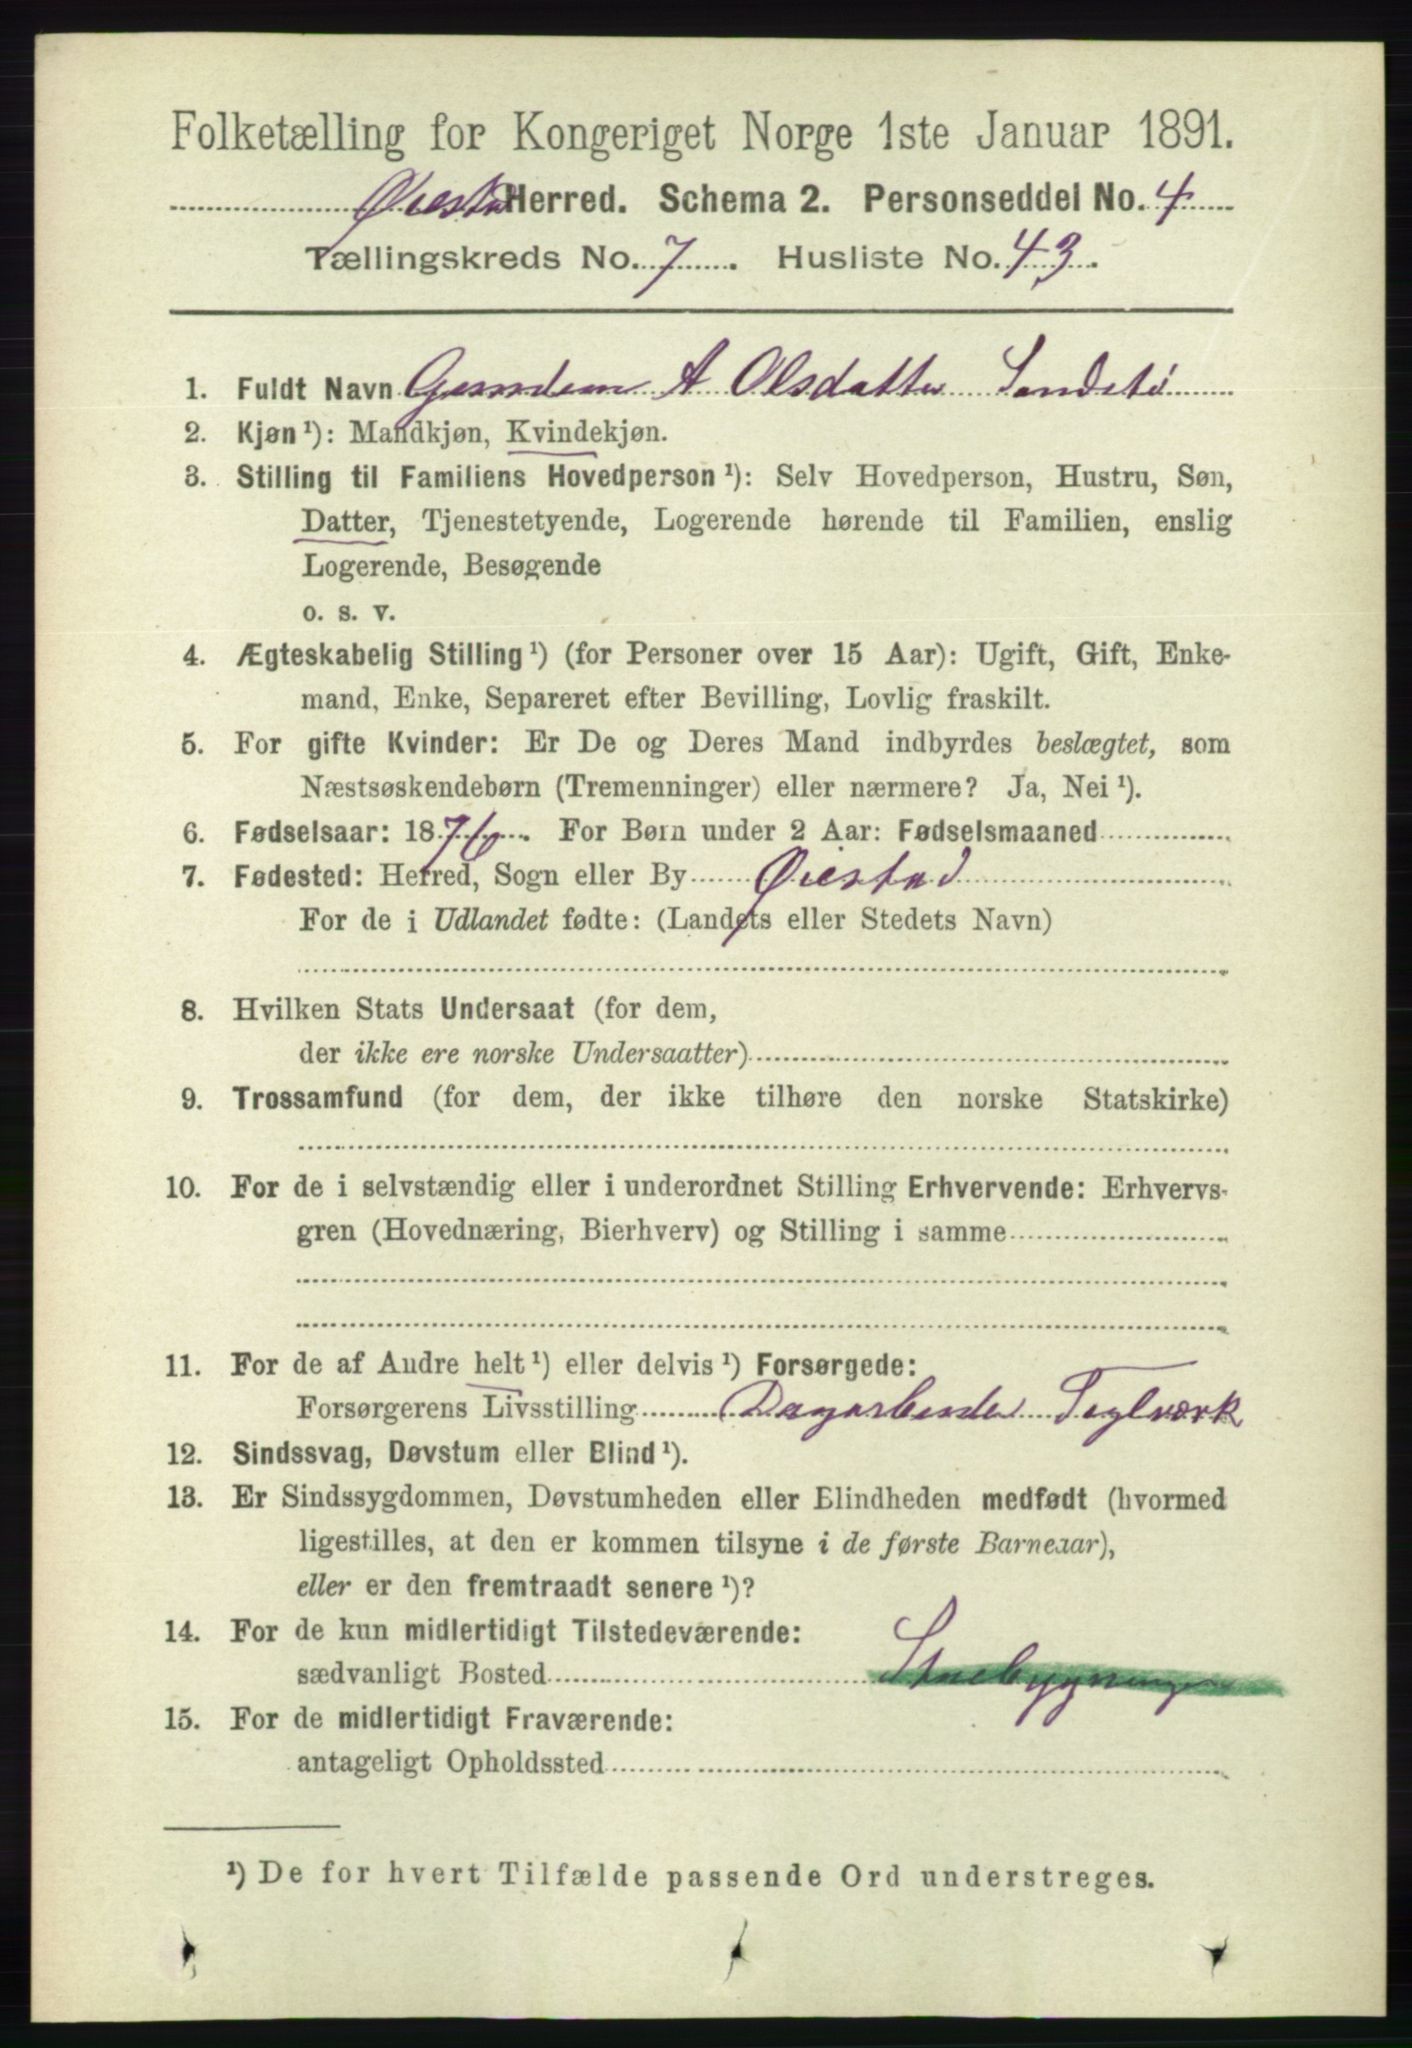 Folketælling for Kongeriget Norge 1ste Januar 1891.
Øiestad Herred. Schema 2. Personseddel No. 4
Tællingskreds No. 7. Husliste No. 43.
1. Fuldt Navn A Olsdatter Sandstø
2. Kjøn ¹): Mandkjøn, Kvindekjøn.
3. Stilling til Familiens Hovedperson ¹): Selv Hovedperson, Hustru, Søn,
Datter, Tjenestetyende, Logerende hørende til Familien, enslig
Logerende, Besøgende
o. s. v.
4. Ægteskabelig Stilling ¹) (for Personer over 15 Aar): Ugift, Gift, Enke-
mand, Enke, Separeret efter Bevilling, Lovlig fraskilt.
5. For gifte Kvinder: Er De og Deres Mand indbyrdes beslægtet, som
Næstsøskendebørn (Tremenninger) eller nærmere? Ja, Nei ¹).
6. Fødselsaar: 1876. For Børn under 2 Aar: Fødselsmaaned
7. Fødested: Herred, Sogn eller By Øiestad
For de i Udlandet fødte: (Landets eller Stedets Navn)
8. Hvilken Stats Undersaat (for dem,
der ikke ere norske Undersaatter)
9. Trossamfund (for dem, der ikke tilhøre den norske Statskirke)
10. For de i selvstændig eller i underordnet Stilling Erhvervende: Erhvervs-
gren (Hovednæring, Bierhverv) og Stilling i samme
11. For de af Andre helt ¹) eller delvis ¹) Forsørgede:
Forsørgerens Livsstilling Dagarbeider Teglværk
12. Sindssvag, Døvstum eller Blind ¹).
13. Er Sindssygdommen, Døvstumheden eller Blindheden medfødt (hvormed
ligestilles, at den er kommen tilsyne i de første Barneaar),
eller er den fremtraadt senere ¹)?
14. For de kun midlertidigt Tilstedeværende:
sædvanligt Bosted Stuebygningen
15. For de midlertidigt Fraværende:
antageligt Opholdssted
¹) De for hvert Tilfælde passende Ord understreges.